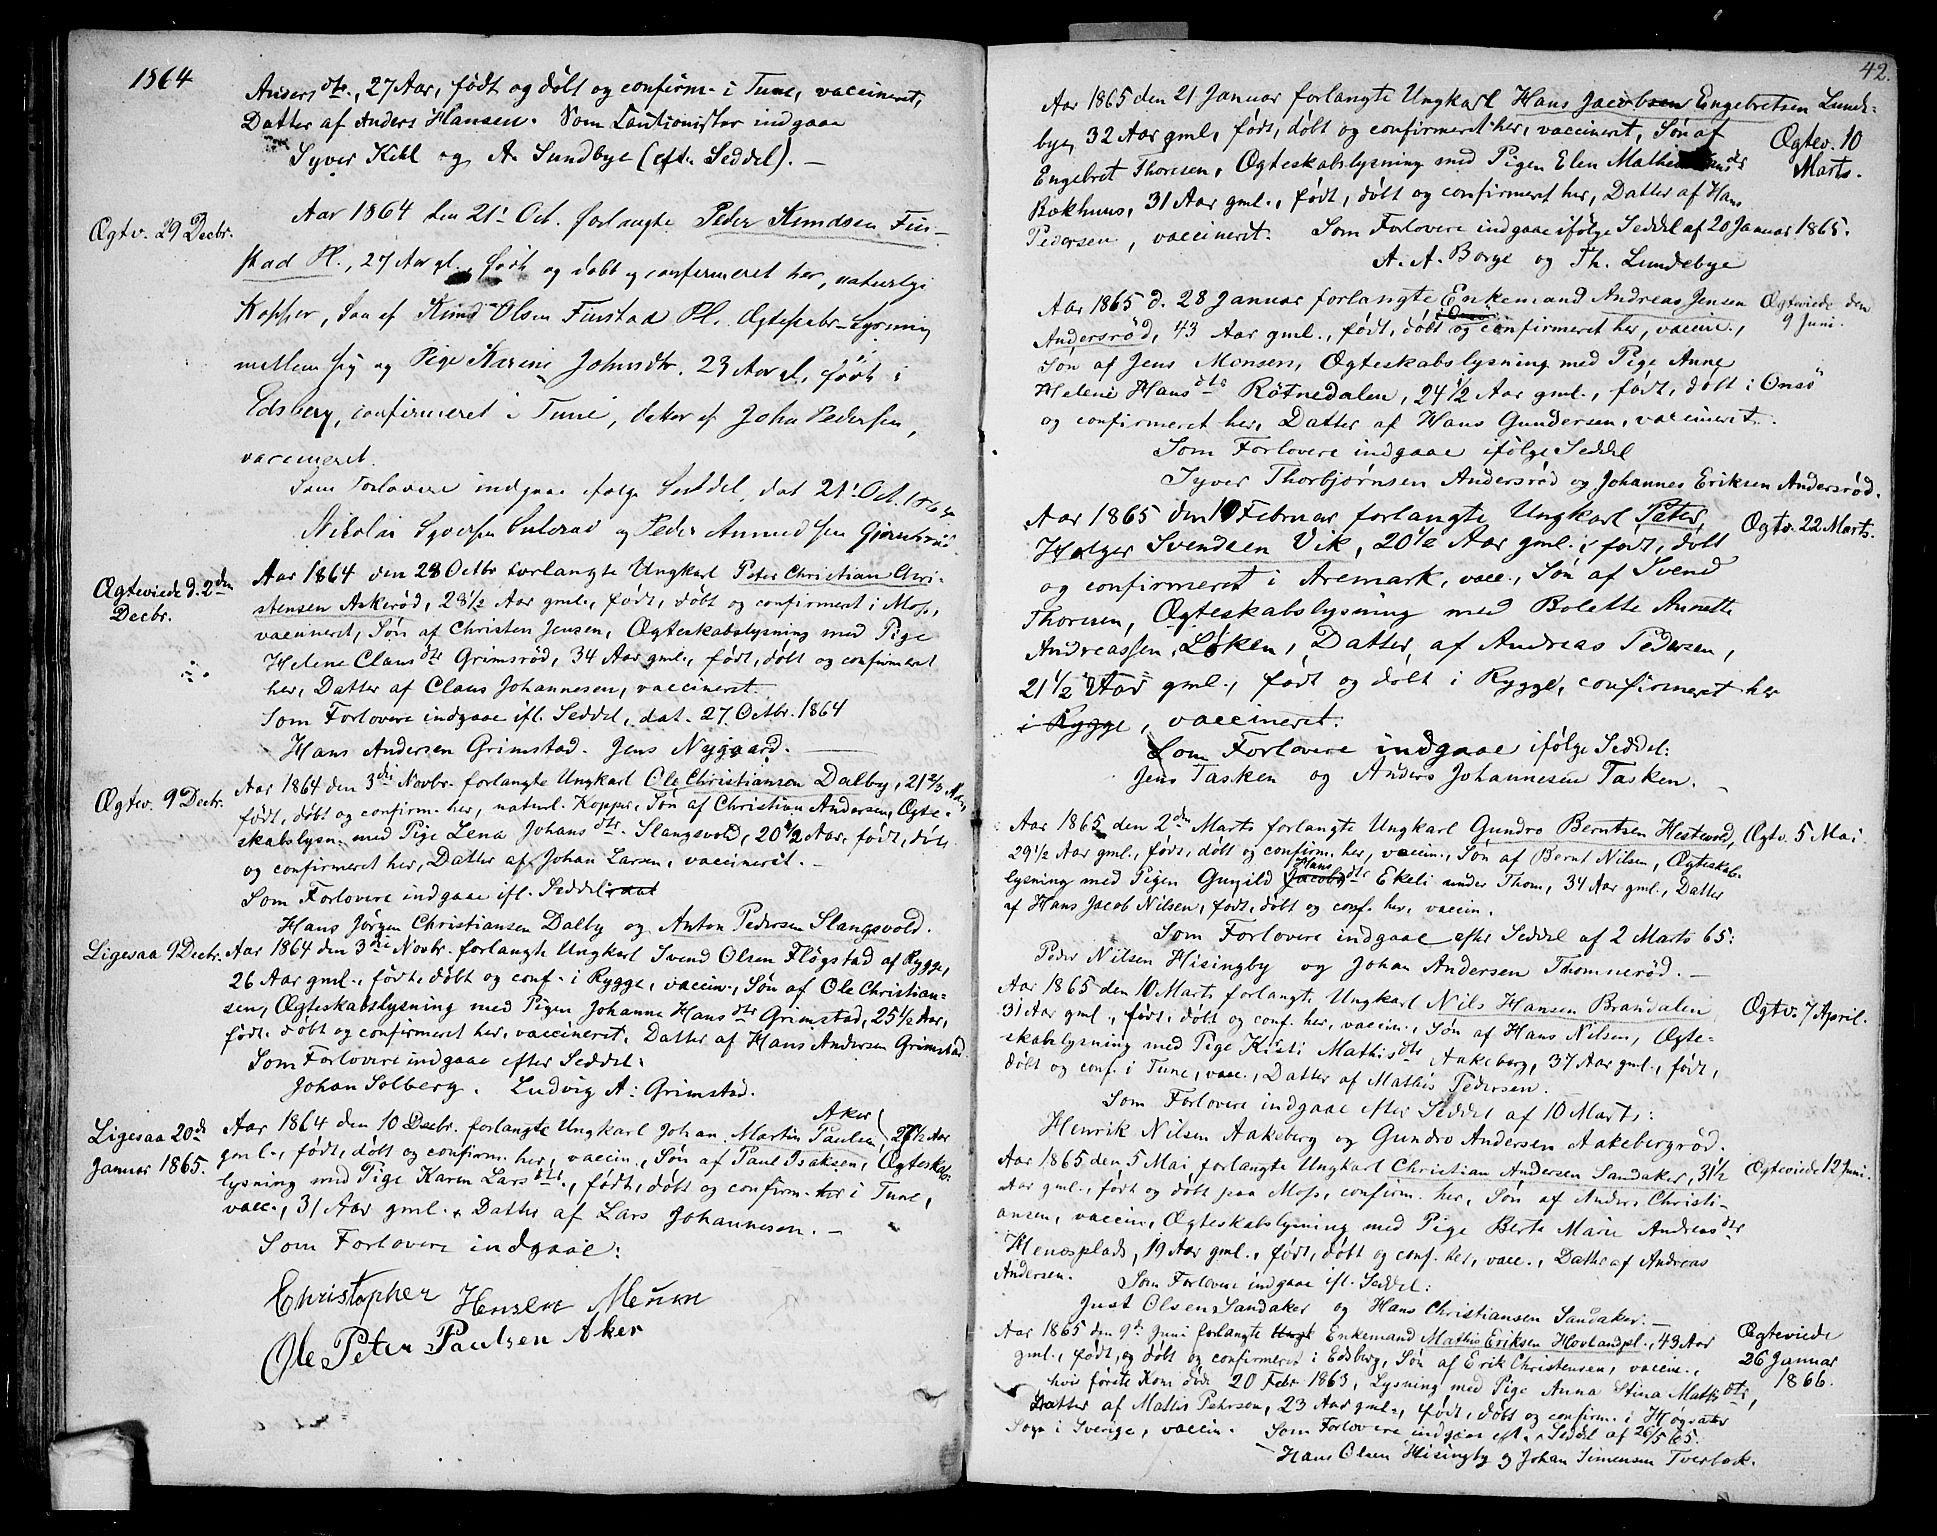 1864
Anders dtr., 27 Aar, født og døbt og confirm. i Tune, vaccineret,
Datter af Anders Hansen. Som Cautionister indgaae
Syver Kihl og A. Sundbye (eft. Seddel). —
Ægtv. 29 Decbr.
Aar 1864 den 21' Oct. forlangte Peder Knudsen Fin-
stad Pl., 27 Aar gl., født og døbt og confirmeret her, naturlige
Kopper, Søn af Knud Olsen Finstad Pl. Ægteskabs-Lysning
mellem sig og Pige Karine Johnsdtr. 23 Aar gl, født i
Edsberg, confirmeret i Tune, datter af John Pedersen,
vaccineret.
Som Forlovere indgaae ifølge Seddel, dat 21' Oct. 1864
Nikolai Syversen og Peder Amundsen
Ægteviede d. 2den
Decbr.
Aar 1864 den 28 Octbr forlangte Ungkarl Peter Christian Chri-
stensen Askerød, 28 1/2 Aar gml., født, døbt og confirmeret i Moss,
vaccineret, Søn af Christen Jensen, Ægteskabslysning med Pige
Helene Claus dtr Grimsrød, 34 Aar gml., født, døbt og confirmeret
her, Datter af Claus Johannesen, vaccineret.
Som Forlovere indgaae ifl. Seddel, dat. 27. Octbr. 1864
Hans Andersen Grimstad. Jens Nygaard. —
Ægtev. 9 Decbr.
Aar 1864 den 3die Novbr. forlangte Ungkarl Ole Christiansen Dalby, 21 2/3 Aar,
født, døbt og confirm. her, naturl. Kopper, Søn af Christian Andersen, Ægte-
skabslysn. med Pige Lena Johans dtr. Slangsvold, 20 1/2 Aar, født, døbt
og confirmeret her, Datter af Johan Larsen, vaccineret. —
Som Forlovere indgaae ifl. Seddel
Hans Jørgen Christiansen Dalby og Anton Pedersen Slangsvold.
Ligesaa 9 Decbr.
Aar 1864 den 3die Novbr. forlangte Ungkarl Svend Olsen Fløgstad af Rygge,
26 Aar gml., født, døbt og conf. i Rygge, vaccin., Søn af Ole Christian-
sen, Ægteskabslysning med Pigen Johanne Hans dtr Grimstad, 25 1/2 Aar,
født. døbt og confirmeret her, vaccineret. Datter af Hans Andersen Grimstad.
Som Forlovere indgaae efter Seddel:
Johan Solberg. Ludvig A: Grimstad.
Ligesaa 20de
Januar 1865.
Aker
Aar 1864 den 10 Decbr. forlangte Ungkarl Johan Martin Paulsen, 27 1/2 Aar
gml., født, døbt og confirm. her, vaccin., Søn af Paul Isaksen, Ægteskabs-
lysning med Pige Karen Lars dtr., født, døbt og confirm. her i Tune,
vacc., 31 Aar gml. Datter af Lars Johannesen. —
Som Forlovere indgaae:
Christopher Hensen
Ole Peter Paulsen Aker
42.
Aar 1865 den 21 Januar forlangte Ungkarl Hans Jacobsen Engebretsen Lunde-
bye, 32 Aar gml., født, døbt og confirmeret her, vaccineret, Søn af
Engebret Thoresen, Ægteskabslysning med Pigen Elen Mathea Hans dtr
Bakhuus, 31 Aar gml., født, døbt og confirmeret her, Datter af Hans
Pedersen, vaccineret. Som Forlovere indgaae ifølge Seddel af 20 Januar 1865.
A. A. Borge og Th. Lundebye
Ægtev. 10
Marts.
Aar 1865 d. 28 Januar forlangte Enkemand Andreas Jensen
Andersrød, 43 Aar gml., født, døbt og confirmeret her, vaccin.,
Søn af Jens Monsen, Ægteskabslysning med Pige Anne
Helene Hans dtr Røtnedalen, 24 1/2 Aar gml., født, døbt i Onsø
og confirmeret her, Datter af Hans Gundersen, vaccineret.
Som Forlovere indgaae ifølge Seddel
Syver Thorbjørnsen Andersrød og Johannes Eriksen Andersrød.
Ægteviede den
9 Juni.
Aar 1865 den 10 Februar forlangte Ungkarl Peter
Holger Svendsen Vik, 20 1/2 Aar gml., født, døbt
og confirmeret i Aremark, vacc., Søn af Svend
Thoresen, Ægteskabslysning med Bolette Annette
Andreassen Løken, Datter af Andreas Pedersen,
21 1/2 Aar gml., født og døbt i Rygge, confirmeret her
i Rygge, vaccineret.
Som Forlovere indgaae ifølge Seddel:
Jens Tasken og Anders Johannesen Tasken. —
Ægtv. 22 Marts.
Aar 1865 den 2den Marts forlangte Ungkarl Gundro Berntsen Hestevold,
29 1/2 Aar gml., født, døbt og confirm. her, vaccin., Søn af Bernt Nilsen, Ægteskab-
Hans
lysning med Pigen Gunild Jacobs dtr Ekeli under Thom, 34 Aar gml., Datter
af Hans Jacob Nilsen, født, døbt og conf. her, vaccin.
Som Forlovere indgaae efter Seddel af 2 Marts 65:
Peder Nilsen Hisingby og Johan Andersen Thomnerød. —
Ægtv. 5 Mai
Aar 1865 den 10 Marts forlangte Ungkarl Nils Hansen Brandalen
31 Aar gml., født, døbt og conf. her, vaccin., Søn af Hans Nilsen, Ægte-
skabslysning med Pige Kisti Mathis dtr Aakeberg, 37 Aar gml., født,
døbt og conf. i Tune, vacc., Datter af Mathis Pedersen.
Som Forlovere indgaae efter Seddel af 10 Marts:
Henrik Nilsen Aakeberg og Gundro Andersen Aakebergrød.
Ægtv. 7 April.
Aar 1865 den 5 Mai forlangte Ungkarl Christian Andersen Sandaker, 31 1/2
Aar gml., født og døbt paa Moss, confirm. her, Søn af Anders Christi-
ansen, vaccin., Ægteskabslysning med Pige Berte Marie Andreas dtr
Henæsplads, 19 Aar gml., født, døbt og conf. her, vacc., Datter af Andreas
Andersen. Som Forlovere indgaae ifl. Seddel:
Just Olsen Sandaker og Hans Christiansen Sandaker. —
Ægteviede 12 Juni.
Aar 1865 den 9de Juni forlangte Ungk Enkemand Mathis Eriksen Hovlandpl., 43 Aar
gml., født, og døbt og confirmeret i Edsberg, Søn af Erik Christensen, vaccin.,
hvis første Kone døde 20 Febr. 1863, Lysning med Pige Anna Stina Mathis dtr,
Datter af Mathis Pehrsen, 23 Aar gml., født, døbt og confirm. i Høgsäter
Sogn i Sverige, vaccin. Som Forlovere indgaae eft. Seddel af 26/5 65.
Hans Olsen Hisingby og Johan Simensen Tverbæk.
Ægteviede
26 Januar
1866.